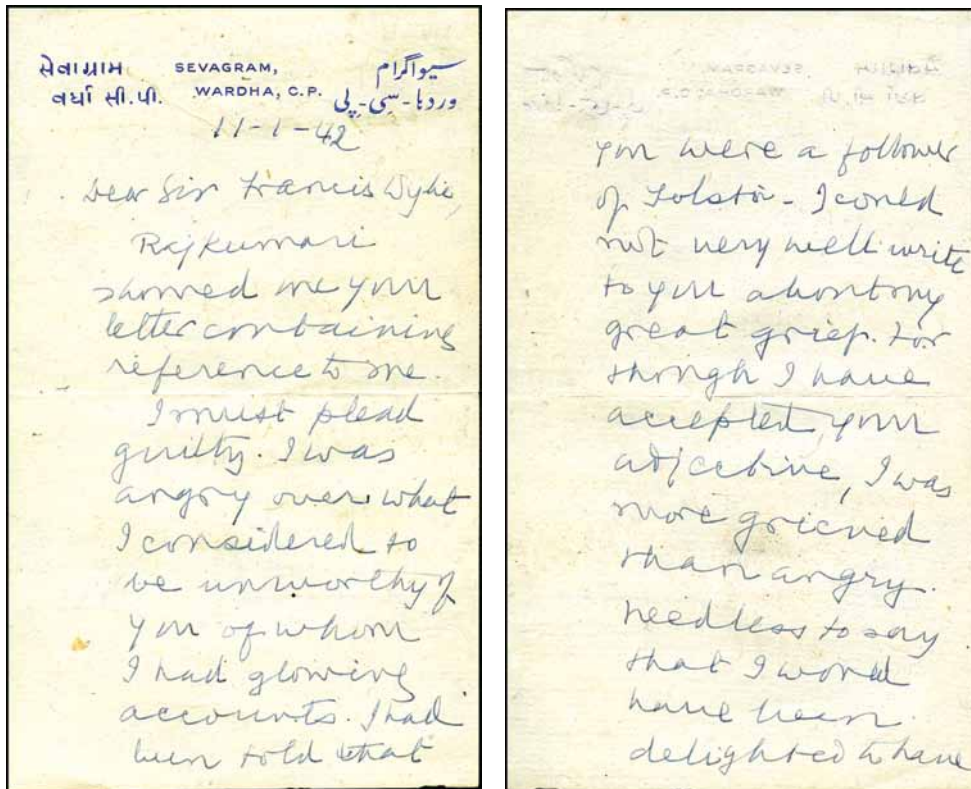 સેવાગ્રામ SEVAGRAM, سیواگرام
વર્ધા સી.પી. WARDHA, C.P. وردہا-سی-پی
11-1-42
Dear Sir Francis Wylie,
Rajkumari
showed me your
letter containing
reference to me.
I must plead
guilty. I was
angry over what
I considered to
be unworthy of
you of whom
I had glowing
accounts. I had
been told that
you were a follower
of Tolstoi - I could
not very well write
to you about my
great grief. For
though I have
accepted your
adjective, I was
more grieved
than angry.
needless to say
that I would
have been
delighted to have